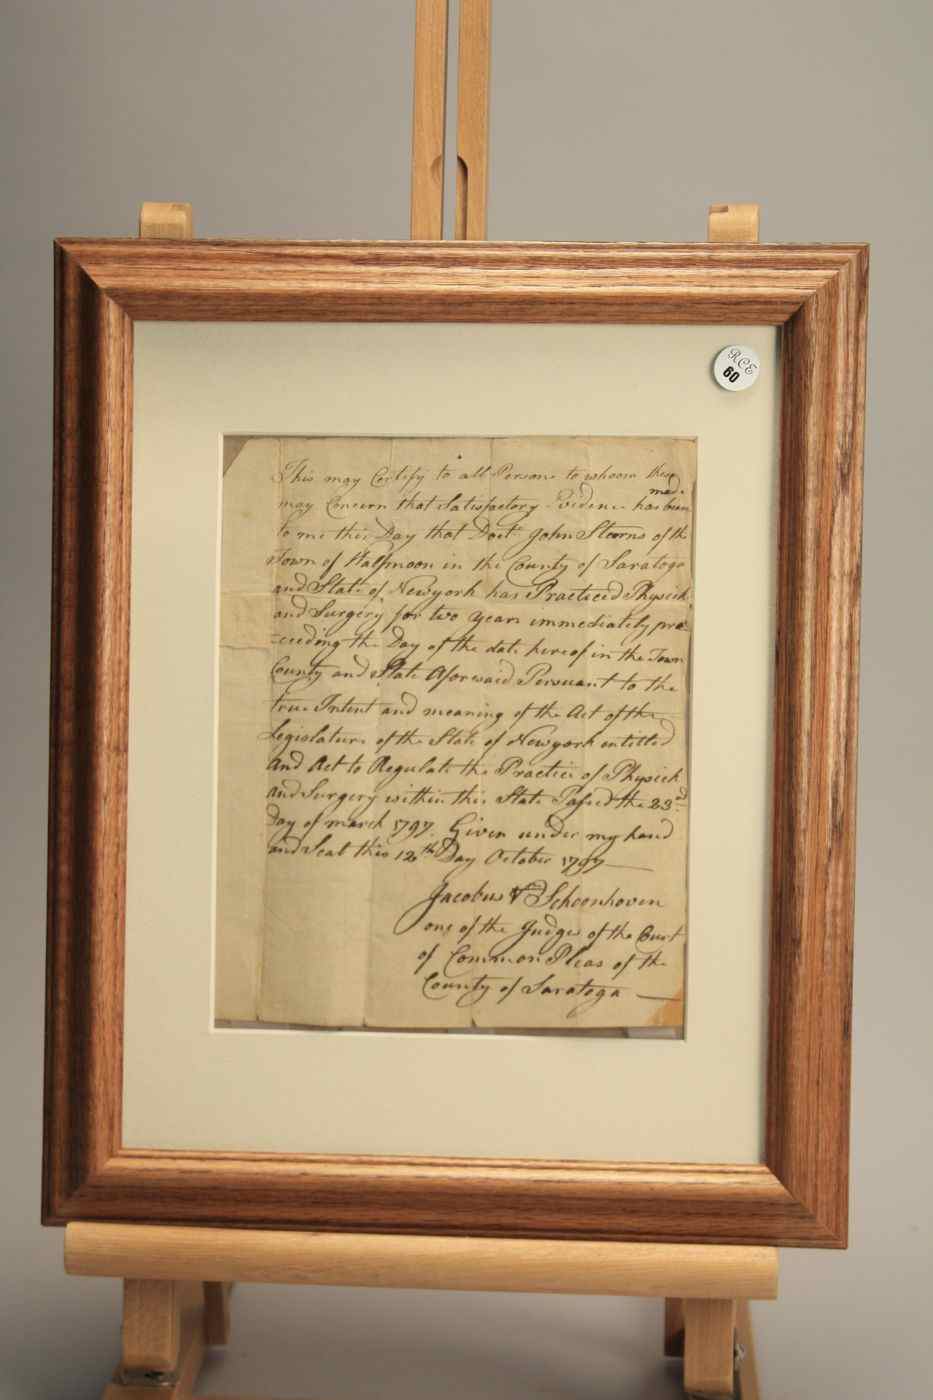 RCE
60
This may Certify to all Persons to whom these
made
may Concern that Satisfactory Evidence has been
to me this Day that Doctr. John Stearns of the
Town of Halfmoon in the County of Saratoga
and State of Newyork has Practiced Physick
and Surgery for two years immediately pre-
-ceeding the Day of the date hereof in the Town
County and State Aforesaid Persuant to the
true Intent and meaning of the Act of the
Legislature of the State of Newyork intitled
And Act to Regulate the Practice of Physick
and Surgery within this State Passed the 23rd
Day of march 1797. Given under my hand
and Seal this 12th Day October 1797
Jacobus V Schoonhoven
one of the Judges of the Court
of Common Pleas of the
County of Saratoga